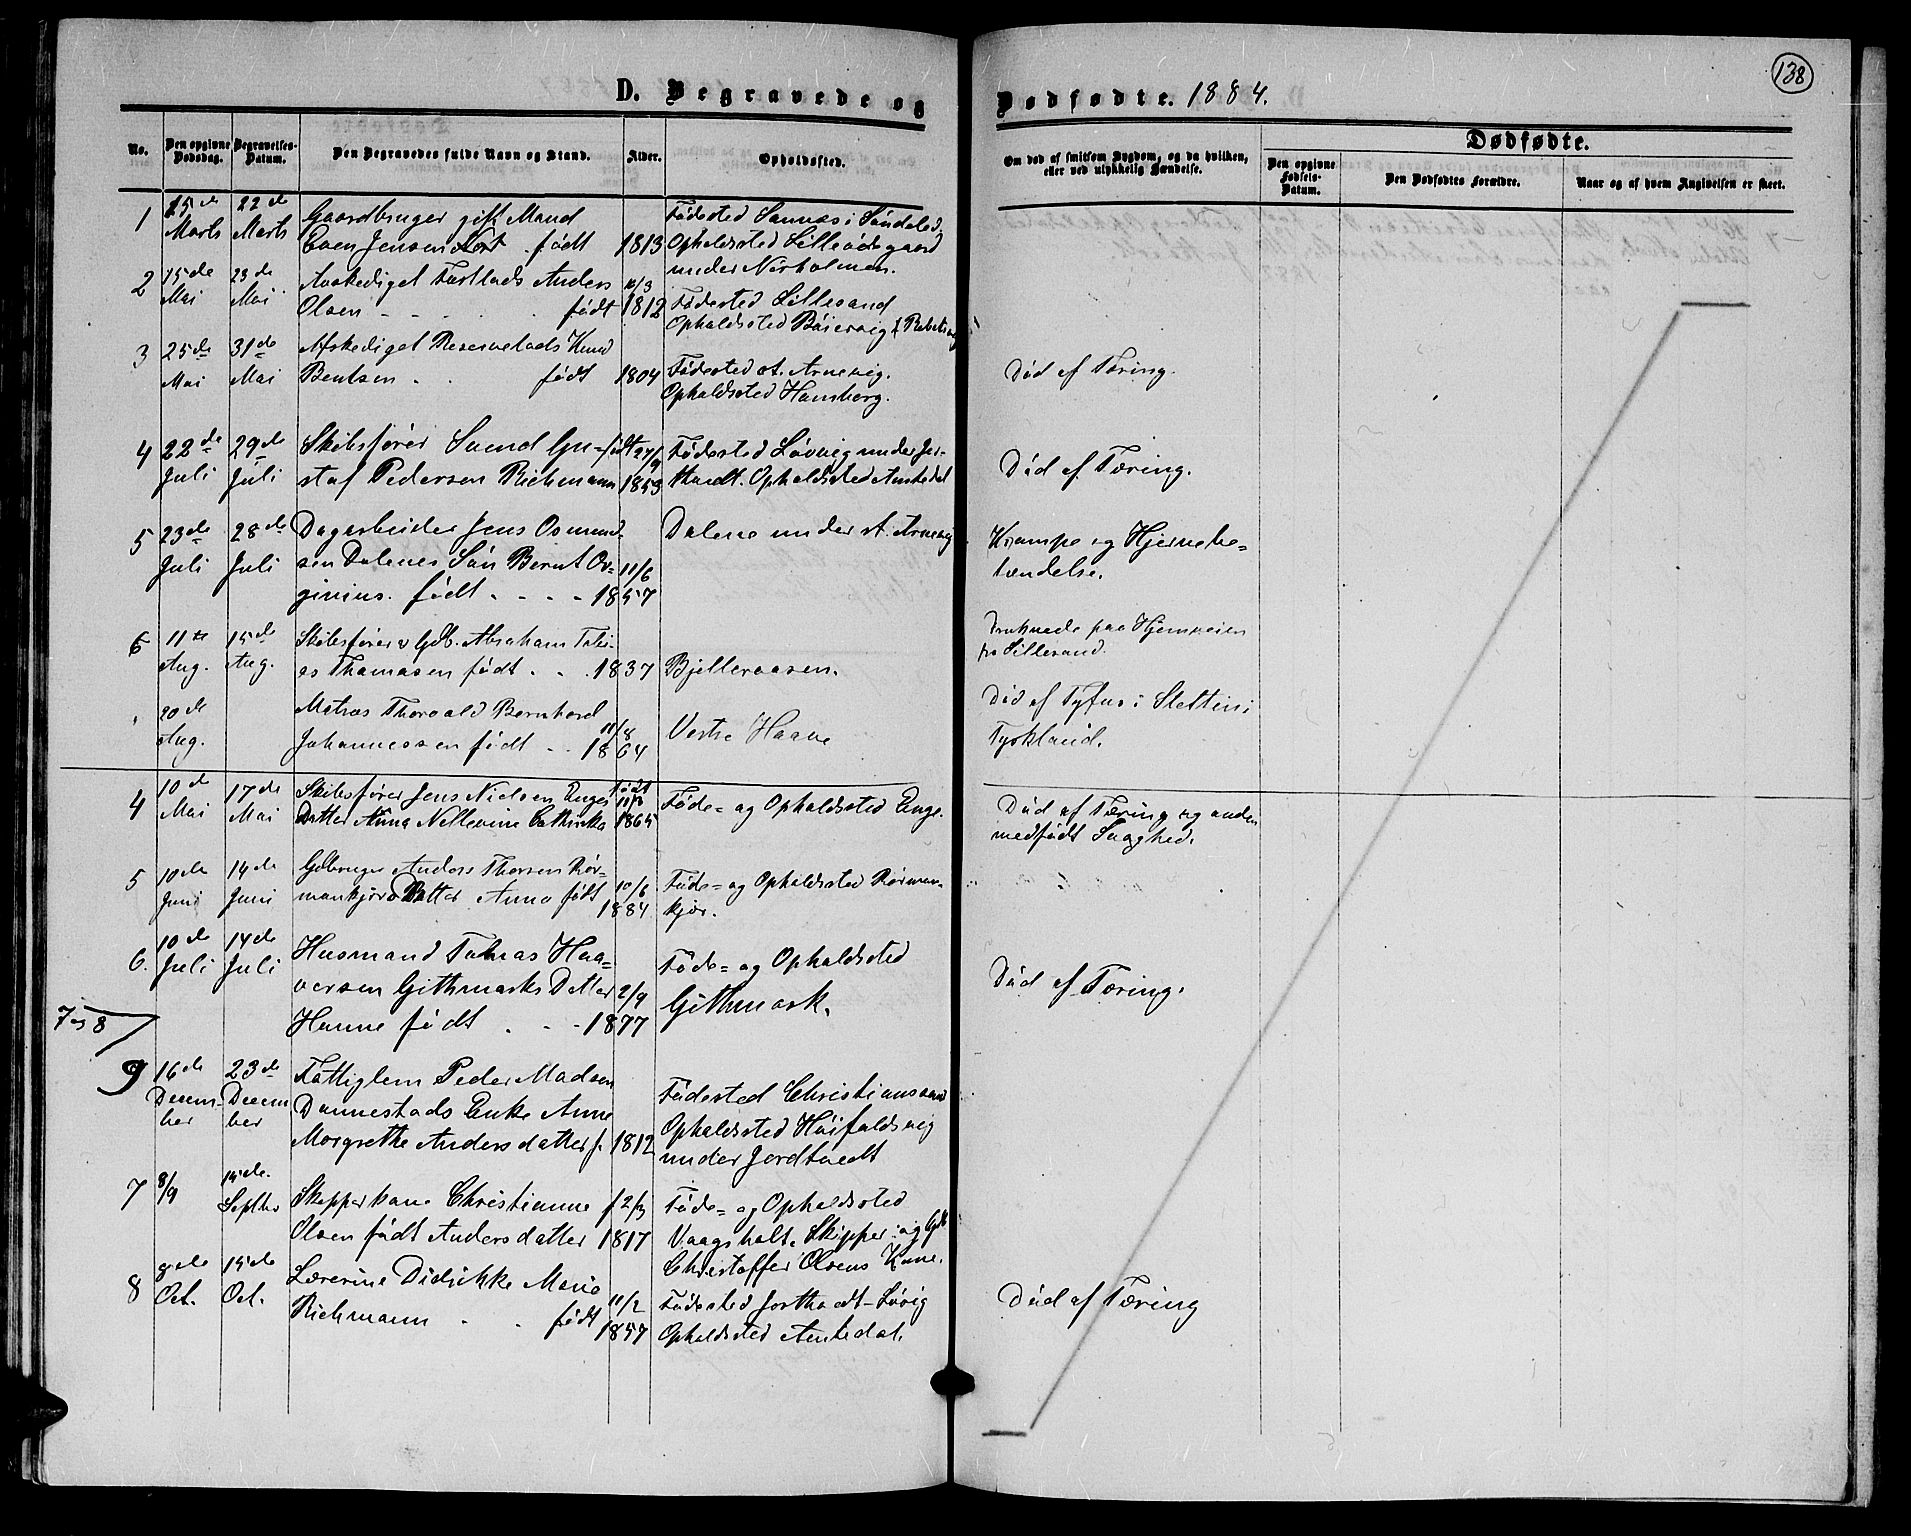 138
D. Begravede og Dødfødte. 1884.
No.
Den opgivne Dødsdag.
Begravelses-Datum.
Den Begravedes fulde Navn og Stand.
Alder.
Opholdssted.
Om død af smitsom Sygdom, og da hvilken, eller ved ulykkelig Hændelse.
Dødfødte.
Den opgivne Fødsels-Datum.
Den Dødfødtes Forældre.
Naar og af hvem Angivelsen er skeet.
1 15de Marts 22de Marts Gaardbruger gift Mand
Jensen født 1813 Fødested i Søndeled
Opholdssted Lilleødegaard
under Nørholmen.
2 15de Mai 23de Mai Anders
Olsen - født 1812 Fødested Lillesand
Opholdssted
3 25de Mai 31de Mai Afskediget Knud
Bentsen født 1804 Fødested st. Arnevig.
Opholdssted Hamsborg.
Død af Tæring.
4 22de Juli 29de Juli Skibsfører Svend Gu- født 27/9
staf Pedersen Richmann 1853 Fødested Løvvig under
Opholdssted Amtedal
Død af Tæring.
5 23de Juli 28de Juli Dagarbeider Jens Osmund-
sen Dalenes Søn Bernt 11/6
født - - - - 1857
Dalene under st. Arnevig
Krampe og Hjernebe=
tændelse.
6 11te Aug. 15de Aug. Skibsfører & Gdb. Abraham Tobi-
as Thomasen født . . . 1837 Bjelleraasen.
Druknede paa Hjemveien
fra Lillesand.
20de Aug. Matros Thorvald Bernhard
Johannessen født . . 11/8 1864 Vestre Haave
Død af Tyfus i Stettin i
Tyskland.
4 10de Mai 17de Mai Skibsfører Jens Nielsen Enges født
Datter Anna Nellevine Cathinka 1865 Føde= og Opholdssted Enge.
Død af Tæring og anden
medfødt Svaghed.
5 10de Juni 14de Juni Gdbruger Anders Thorsen Rør-
mankjærs Datter Anna født 10/6 1884
Føde= og Opholdssted Rørman-
kjær.
6. 10de Juli 14de Juli Husmand Tobias Haa=
versen Githmarks Datter 2/9
Hanne født . . - 1877
Føde= og Opholdssted
Githmark.
Død af Tæring.
7 og 8
9 16de Decem-ber 23de Decem-ber Fattiglem Peder Madsen
Dannestads Enke Anne
Margrethe Andersdatter f. 1812
Fødested Christianssand
Opholdssted Høifaldsvig
under Jordtvedt
7 8/9 15de Septbr Skipperkone Christianne f 2/3
Olsen født Andersdatter 1817
Føde= og Opholdssted
Vaagsholt. Skipper og Gdb
Christoffer Olsens Kone.
8 8de Oct. 15de Oct. Lærerine Didrikke Marie
Richmann . . født 11/2 1857
Fødested Jortvedt-Løvig
Opholdssted Amtedal.
Død af Tæring